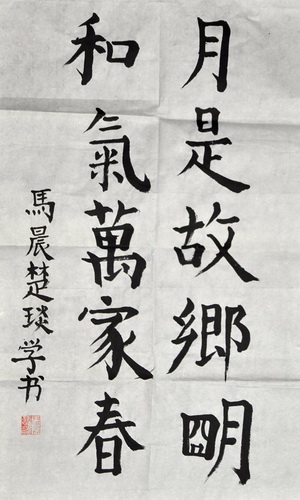 月是故鄉明
和氣萬家春
馬晨楚琰学书